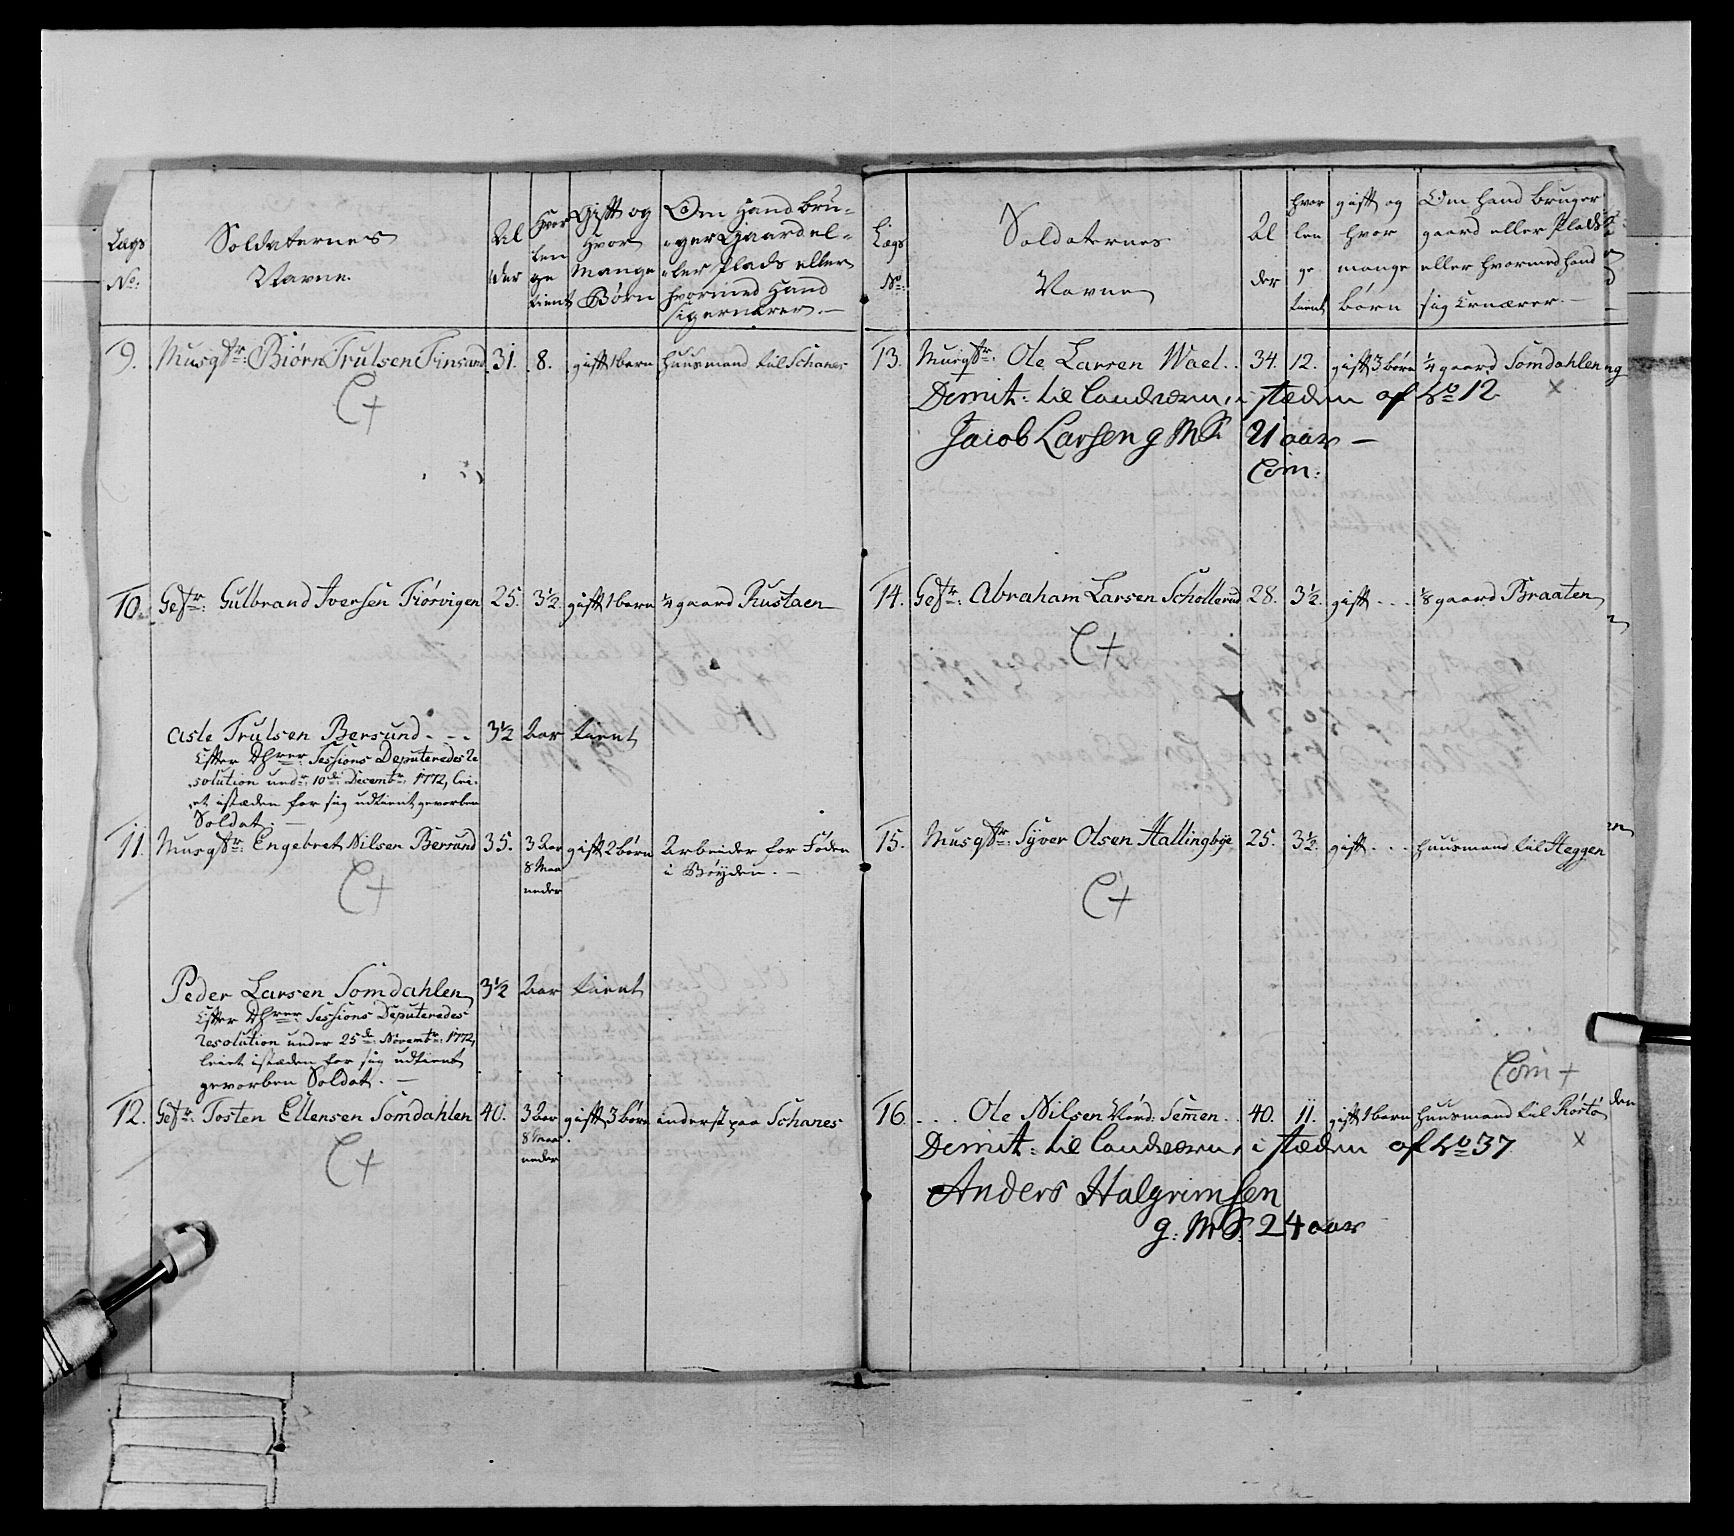 Lægs
No:
Soldaternes
Navne
Al
der
Hvor
len
ge
tient
Gift og
Hvor
Mange
Børn
Om Hand bru-
-ger Gaard el-
-ler Plads eller
hvormed Hand
sig ernærer.
9. Musqtr: Biørn Trulsen Finsand 31. 8. gift 1 barn huusmand til Schanes
C+
10. Gefr: Gulbrand Iversen Fiørvigen 25. 3½. gift 1 barn ¼ gaard Rustaen
Asle Trulsen Bersund . - - 3½ Aar tient
Efter Dhrrer: Sessions Deputeredes Re
solution undr: 10de Decembr: 1772, lei-
et istæden for sig udtient gevorben
Soldat.
11. Musqtr: Engebret Nilsen Bersund 35. 3 Aar gift 2 børn Arbeider for Føden
8 Maa
neder
i Bøyden.
C+
Peder Larsen Somdahlen 3½ Aar tient
Efter Dhrrer: Sessions Deputeredes
Resolution under 25de Novembr: 1772,
leiet istæden for sig udtient
gevorben Soldat.
12. Gefr: Tosten Ellensen Somdahlen 40. 3 Aar gift 3 børn inderst paa Schanes
8 Maa
neder
C+
Lægs
No:
Soldaternes
Navne
Al
der
hvor
len
ge
tient
gift og
hvor
mange
børn
Om hand bruger
gaard eller Plads
eller hvormed hand
sig Ernærer.
13. Musqtr: Ole Larsen Wael. . 34. 12. gift 3 børn ¼ gaard Somdahlen
Demit: til landværn, i stæden af No 12 x
Jacob Larsen g M S. 21 aar -
Com:
14. Gefr: Abraham Larsen Schollerud 28. 3½. gift . . . ⅛ gaard Braaten
C+
15. Musqtr: Syver Olsen Hallingbye 25. 3½. gift . . . huusmand til Heggen
C+
Com +
16. . . . Ole Nilsen Nord: Semen . . 40. 11. gift 1 barn huusmand til Røstø
Demit: til landværn, i stæden af No 37 x
Anders Halgrimsen
g: M S: 24 aar